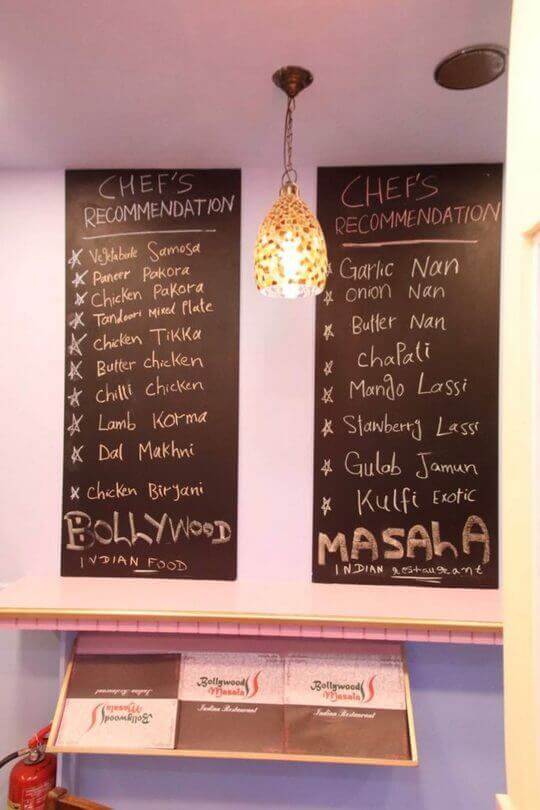 CHEF'S
RECOMMENDATION
Vegletabute Samosa
Paneer Pakora
Chicken Pakora
Tandoori Mixed Plate
Chicken Tikka
Butter Chicken
Chilli Chicken
Lamb Korma
Dal Makhni
Chicken Biryani
BOLLYWOOD
INDIAN FOOD
CHEF'S
RECOMMENDATION
Garlic Nan
onion Nan
Butter Nan
chapati
Mango Lassi
Stawberry Lassi
Gulab Jamun
Kulfi Exotic
MASALA
INDIAN restaurant
Indian Restaurant
Bollywood
Masala
Bollywood
Masala
Indian Restaurant
Bollywood
Masala
Indian Restaurant